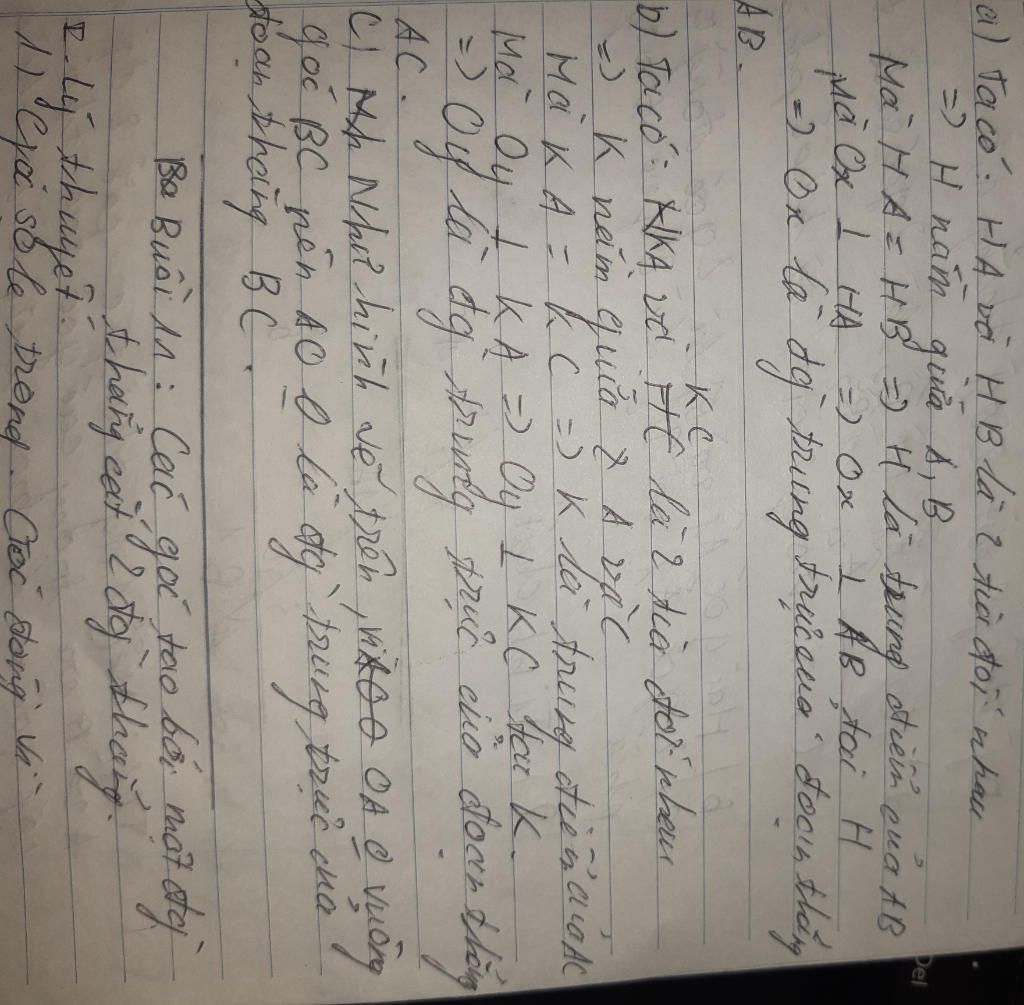 a) Ta có: HA và HB là 2 tia đối nhau
=> H nằm giữa A, B
Mà HA = HB => H là trung điểm của AB
Mà Ox ⊥ HA => Ox ⊥ AB tại H
=> Ox là đg trung trực của đoạn thẳng
AB.
KC
b) Ta có: KA và HC là 2 tia đối nhau
=> K nằm giữa 2 A và C
Mà KA = KC => K là trung điểm của AC
Mà Oy ⊥ KA => Oy ⊥ KC tại K.
=> Oy là đg trung trực của đoạn thẳng
AC.
c) Nhử hình vẽ trên, OA vuông
góc BC nên AO là đg trung trực của
đoạn thẳng BC.
Buổi 11: Các góc tạo bởi một đg
thẳng cắt 2 đg thẳng.
I - Lý thuyết.
1) Góc sole trong. Góc đồng vị
Del